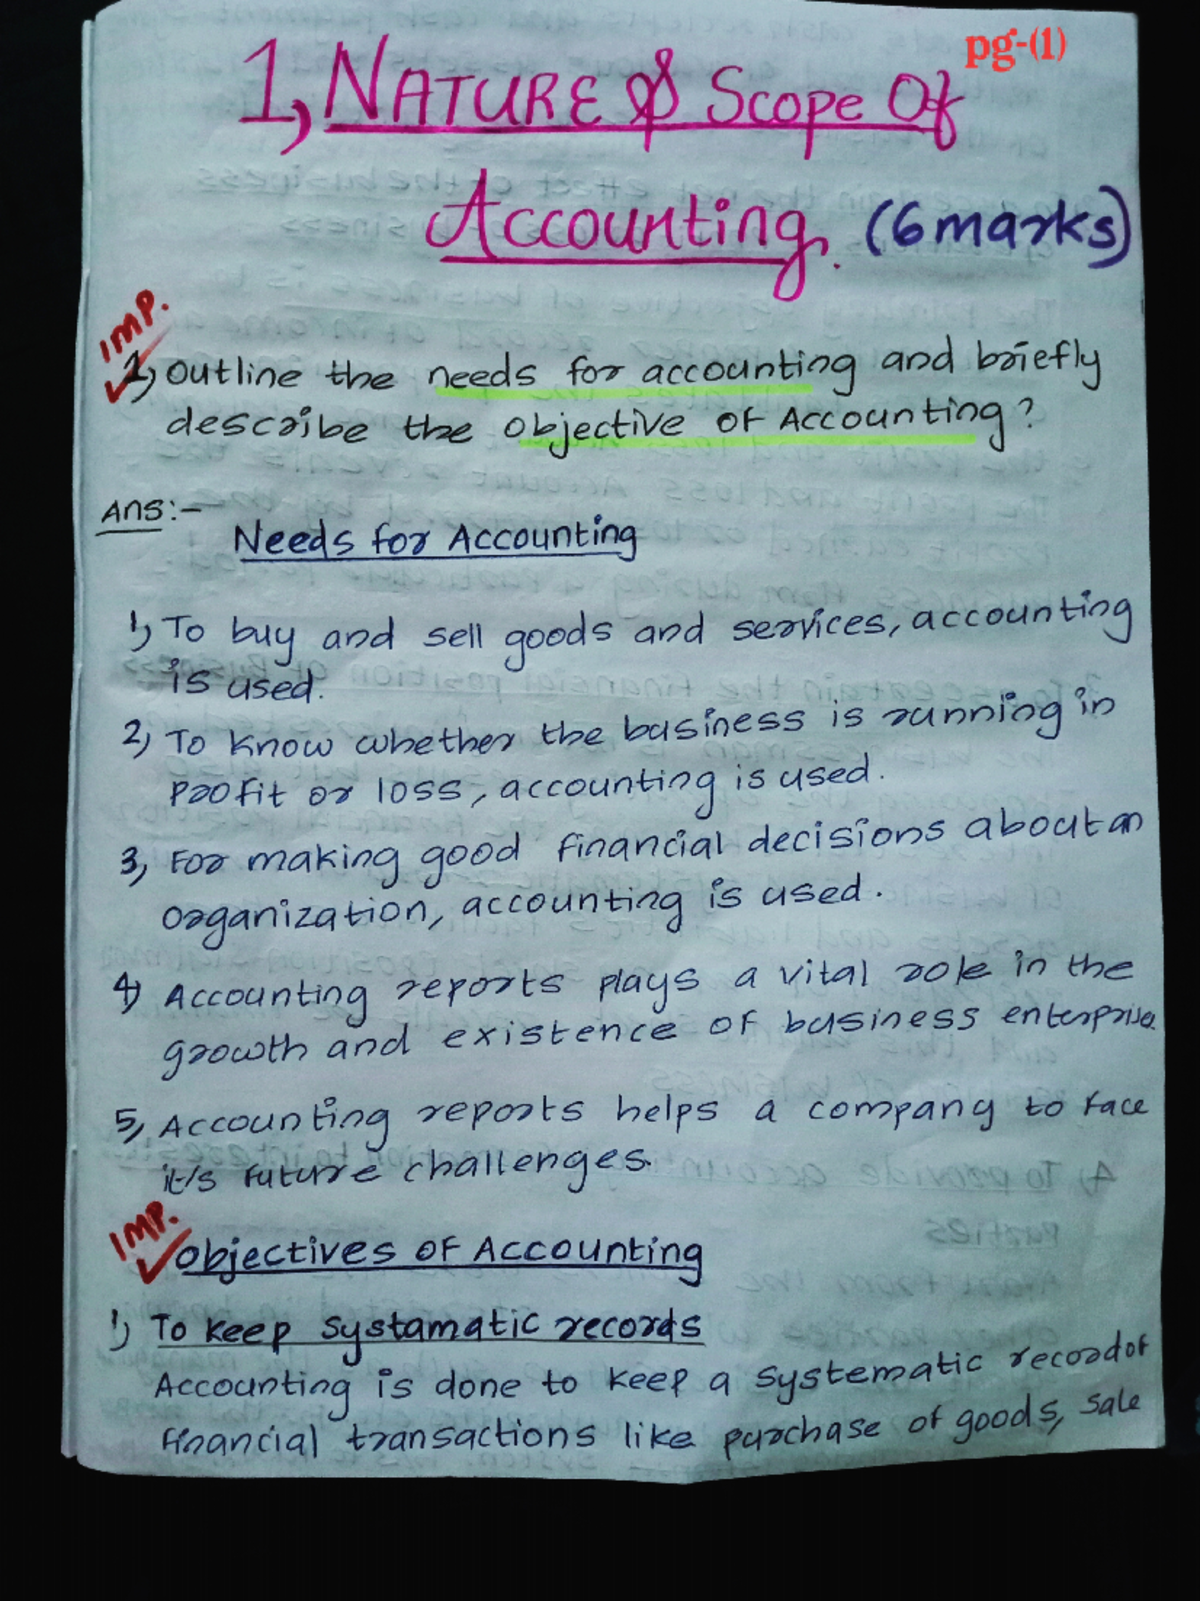 pg-(1)
1, NATURE & Scope Of
Accounting. (6 marks)
IMP.
1, Outline the needs for accounting and briefly
describe the objective of Accounting?
Ans:-
Needs for Accounting
1, To buy and sell goods and services, accounting
is used.
2, To know whether the business is running in
Profit or loss, accounting is used.
3, For making good financial decisions about an
organization, accounting is used.
4, Accounting reports plays a vital role in the
growth and existence of business enterprise.
5, Accounting reports helps a company to face
it's future challenges.
IMP.
objectives of Accounting
1, To keep systamatic records
Accounting is done to keep a systematic record of
financial transactions like purchase of goods, sale